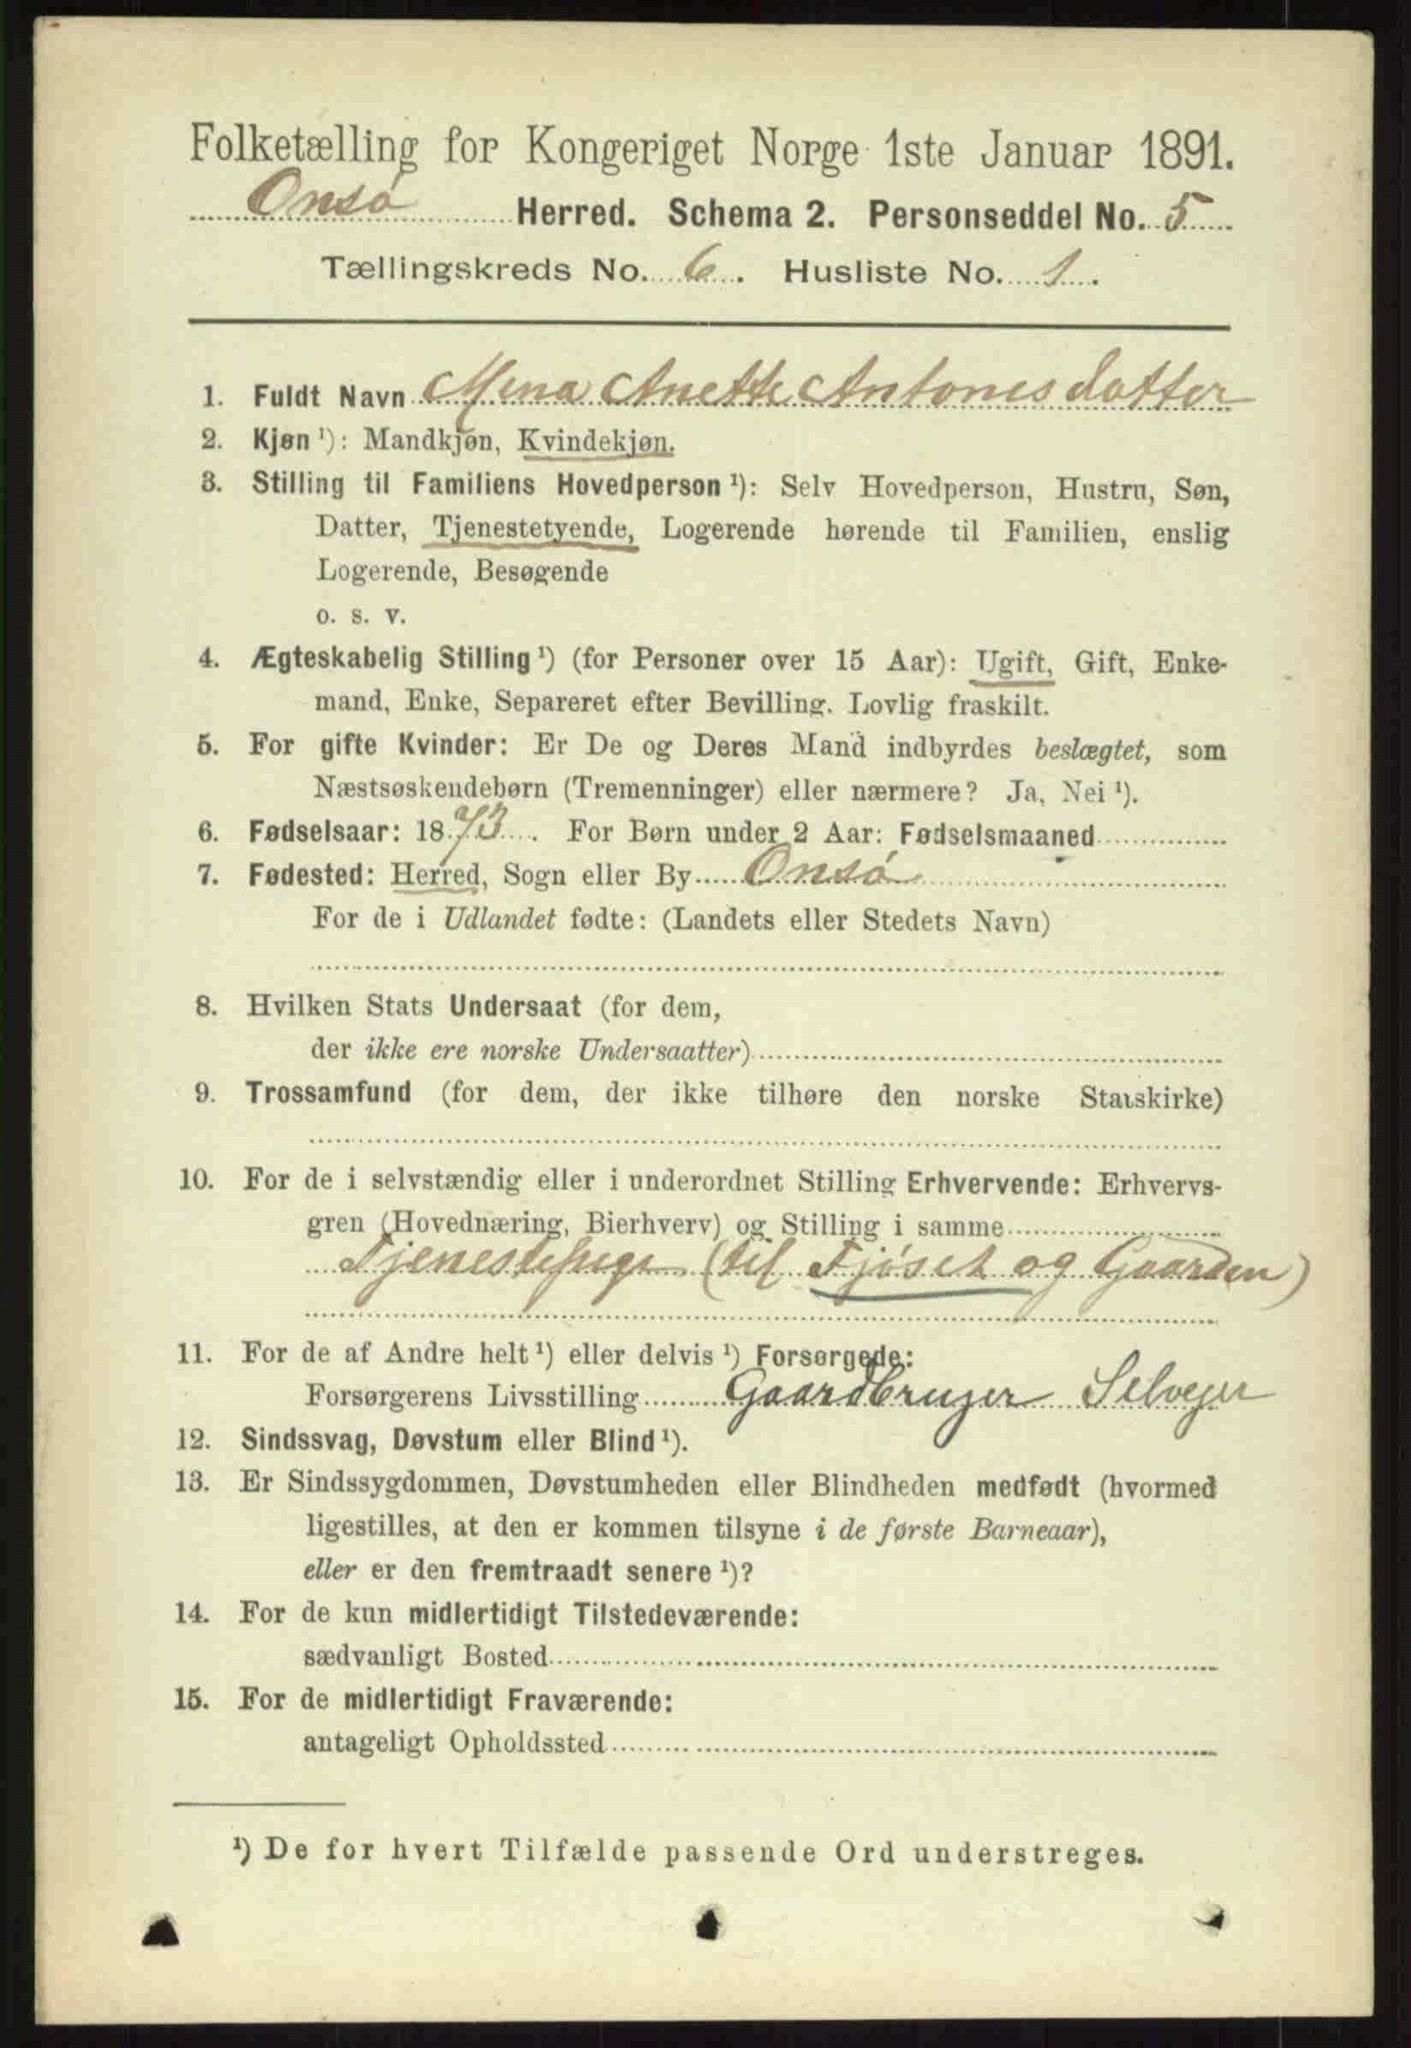 Folketælling for Kongeriget Norge 1ste Januar 1891.
Onsø Herred. Schema 2. Personseddel No. 5
Tællingskreds No. 6. Husliste No. 1.
1. Fuldt Navn Mina Anette Antonisdatter
2. Kjøn ¹): Mandkjøn, Kvindekjøn.
3. Stilling til Familiens Hovedperson ¹): Selv Hovedperson, Hustru, Søn,
Datter, Tjenestetyende, Logerende hørende til Familien, enslig
Logerende, Besøgende
o. s. v.
4. Ægteskabelig Stilling ¹) (for Personer over 15 Aar): Ugift, Gift, Enke-
mand, Enke, Separeret efter Bevilling. Lovlig fraskilt.
5. For gifte Kvinder: Er De og Deres Mand indbyrdes beslægtet, som
Næstsøskendebørn (Tremenninger) eller nærmere? Ja, Nei ¹).
6. Fødselsaar: 1873. For Børn under 2 Aar: Fødselsmaaned
7. Fødested: Herred, Sogn eller By Onsø
For de i Udlandet fødte: (Landets eller Stedets Navn)
8. Hvilken Stats Undersaat (for dem,
der ikke ere norske Undersaatter)
9. Trossamfund (for dem, der ikke tilhøre den norske Statskirke)
10. For de i selvstændig eller i underordnet Stilling Erhvervende: Erhvervs-
gren (Hovednæring, Bierhverv) og Stilling i samme
Tjenestepige (til Fjøset og Gaarden)
11. For de af Andre helt ¹) eller delvis ¹) Forsørgede:
Forsørgerens Livsstilling Gaardbruger Selveier
12. Sindssvag, Døvstum eller Blind ¹).
13. Er Sindssygdommen, Døvstumheden eller Blindheden medfødt (hvormed
ligestilles, at den er kommen tilsyne i de første Barneaar),
eller er den fremtraadt senere ¹)?
14. For de kun midlertidigt Tilstedeværende:
sædvanligt Bosted
15. For de midlertidigt Fraværende:
antageligt Opholdssted
¹) De for hvert Tilfælde passende Ord understreges.